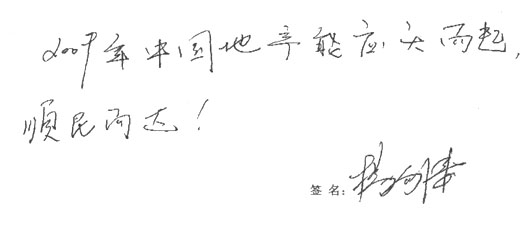 2009年中国地产能应天而起,
顺民而达!
签名: